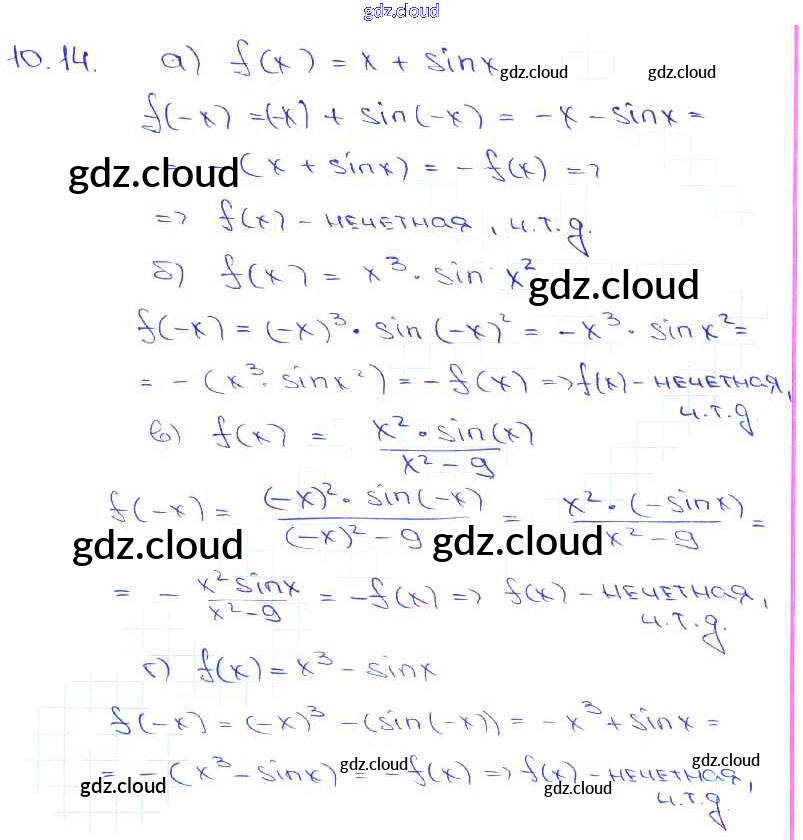 gdz.cloud
10.14. а) f(x) = x + sinx
gdz.cloud gdz.cloud
f(-x) = (-x) + sin(-x) = -x - sinx =
= -(x + sinx) = -f(x) =>
gdz.cloud
=> f(x) - нечетная, ч.т.д.
б) f(x) = x³ · sin x²
gdz.cloud
f(-x) = (-x)³ · sin(-x)² = -x³ · sinx² =
= -(x³ · sinx²) = -f(x) => f(x) - нечетная,
ч.т.д.
в) f(x) = x² · sin(x) / x² - 9
f(-x) = (-x)² · sin(-x) / (-x)² - 9 = x² · (-sinx) / x² - 9 =
gdz.cloud gdz.cloud
= - x² sinx / x² - 9 = -f(x) => f(x) - нечетная,
ч.т.д.
г) f(x) = x³ - sinx
f(-x) = (-x)³ - (sin(-x)) = -x³ + sinx =
= -(x³ - sinx) = -f(x) => f(x) - нечетная,
gdz.cloud gdz.cloud gdz.cloud gdz.cloud
ч.т.д.